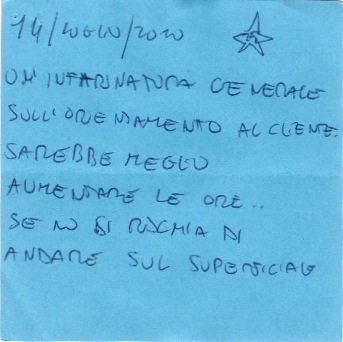 14/LUGLIO/2020
UN'INFARINATURA GENERALE
SULL'ORIENTAMENTO AL CLIENTE.
SAREBBE MEGLIO
AUMENTARE LE ORE..
SE NO SI RISCHIA DI
ANDARE SUL SUPERFICIALE